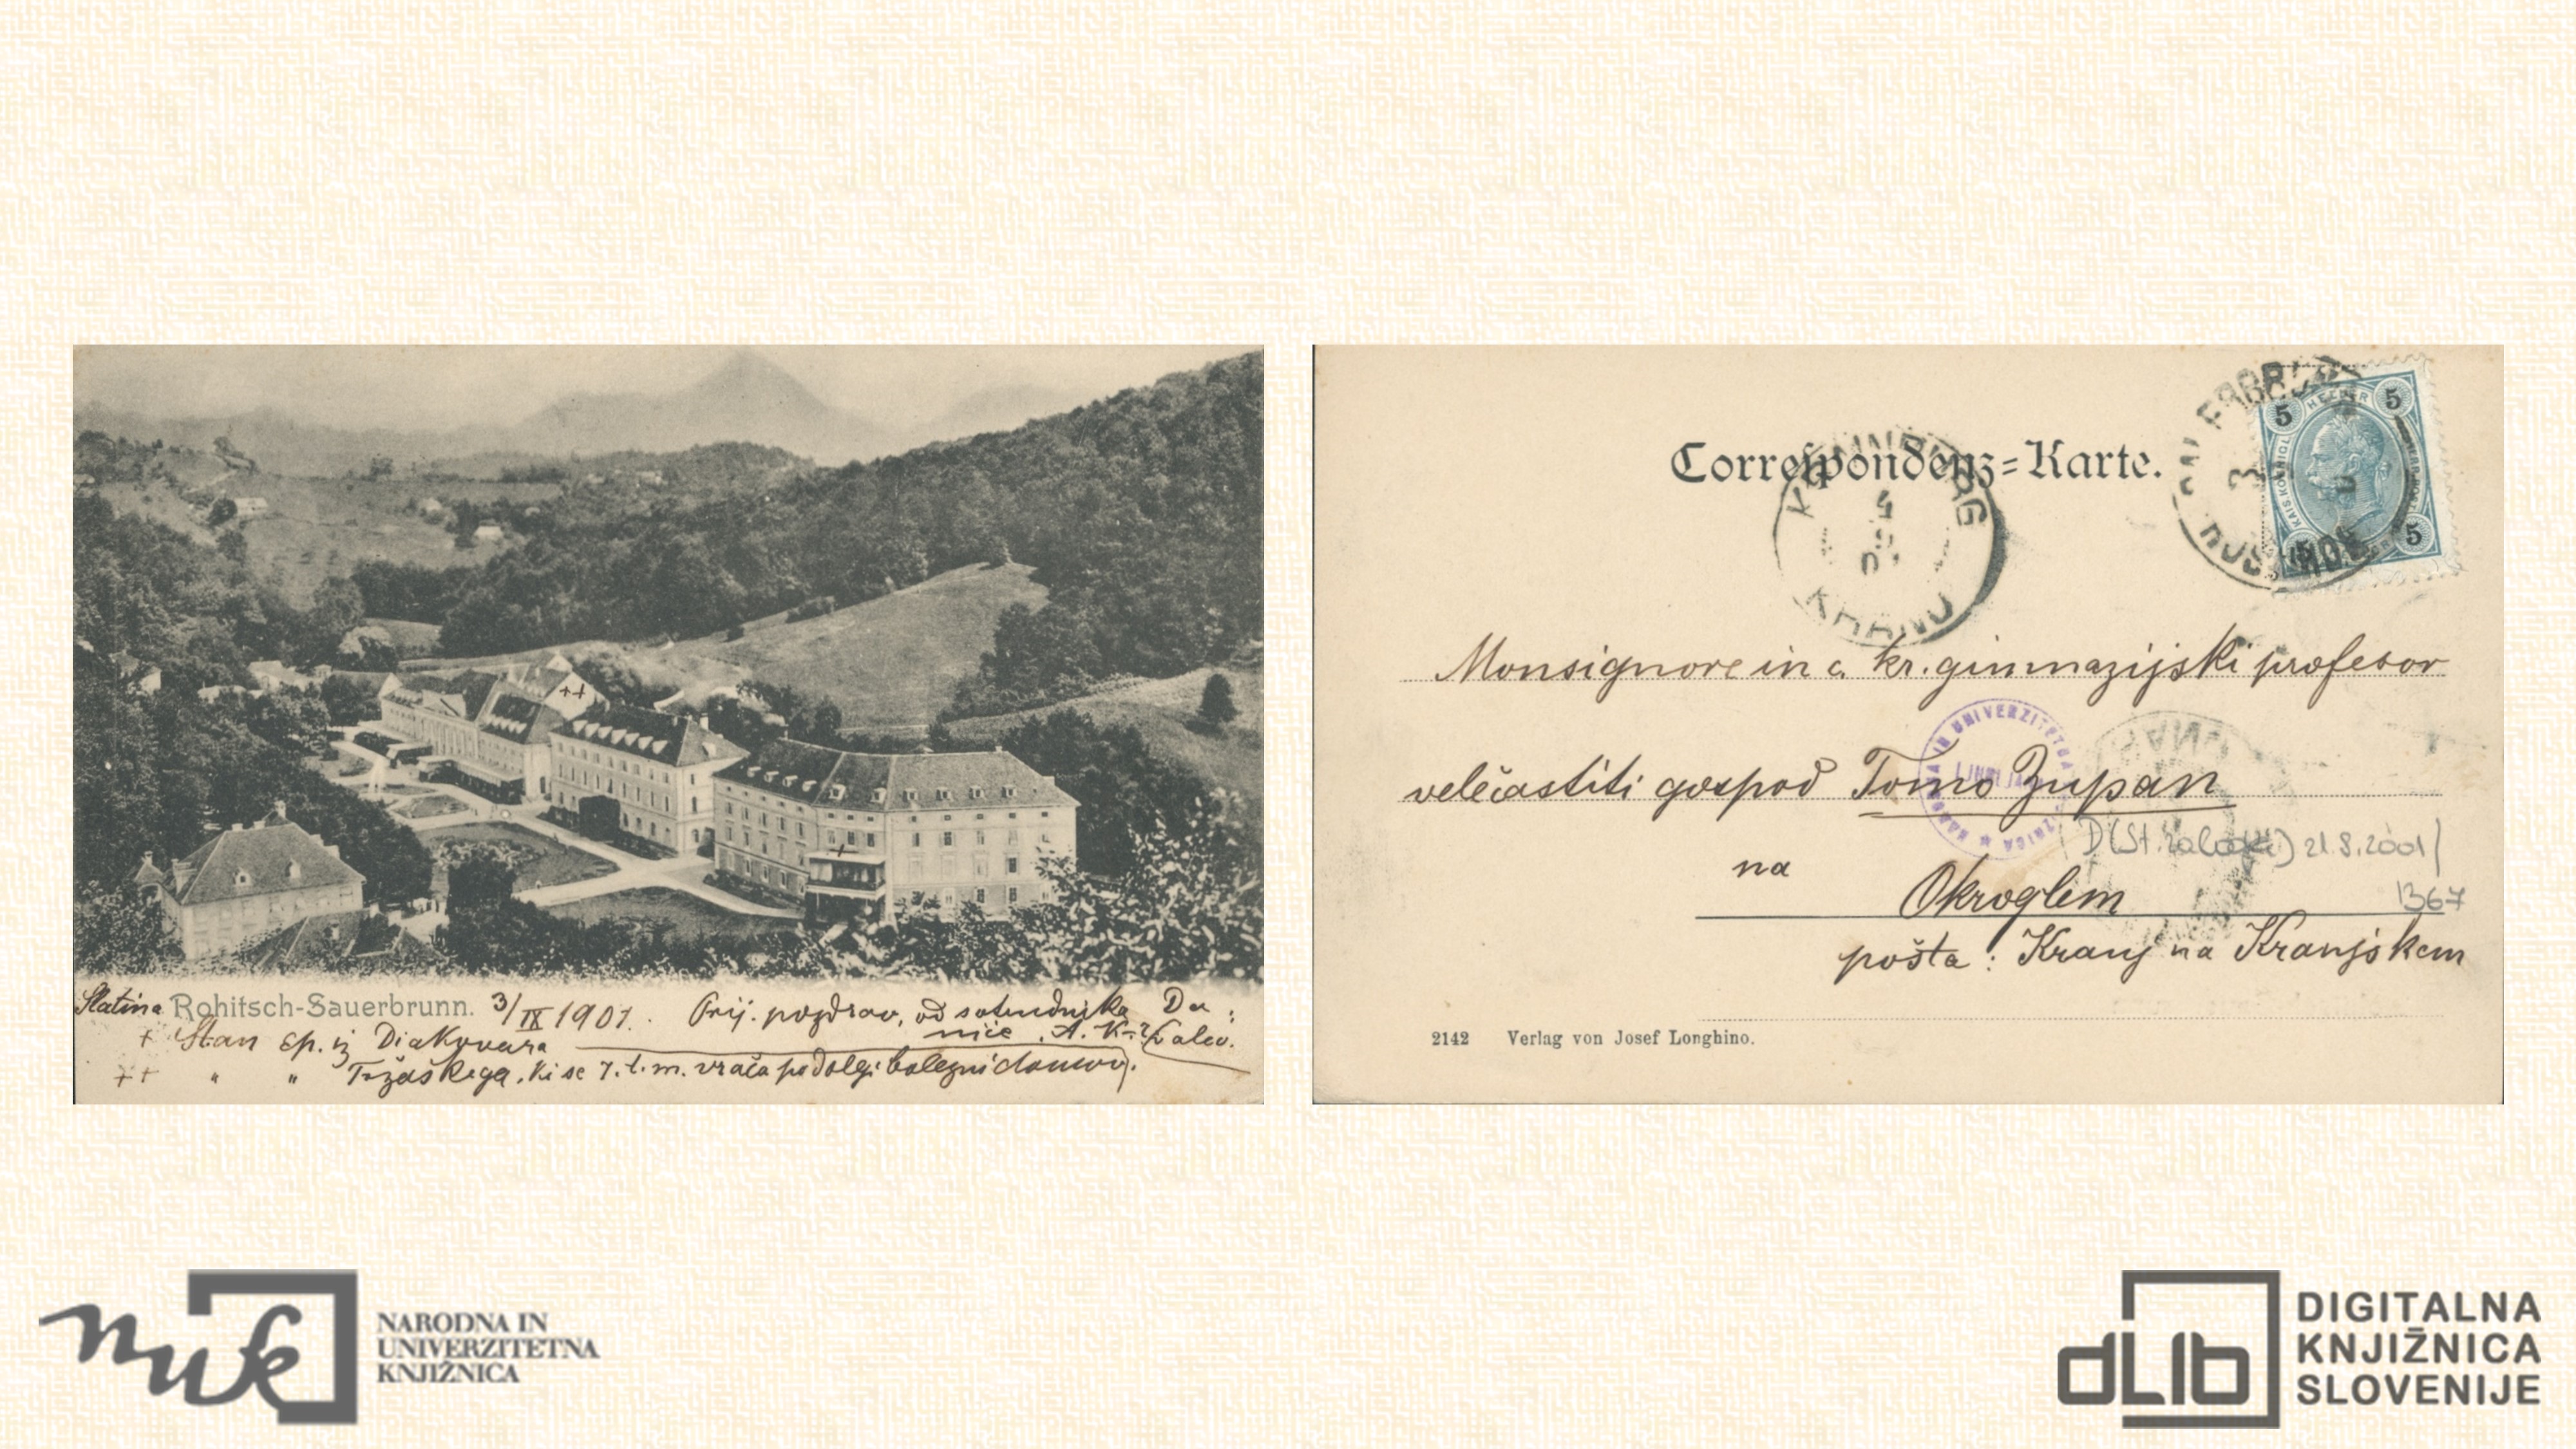 Slatina Rohitsch-Sauerbrunn. 3/IX 1901. Prij. pozdrav, od sotrudnika Da
nice . A. K
+ Stan ep. iz Diakovara
++ " " Tržaškega, ki se 7. t. m. vrača po dolgi bolezni domov.
++
+
Correspondenz=Karte.
KRAINBURG
4
KRANJ
3
5 5 5 5
HELLER
Monsignore in c. kr. gimnazijski profesor
velečastiti gospod Tomo Zupan
NARODNA IN UNIVERZITETNA KNJIŽNICA
LJUBLJANA
D(St. ) 21.8.2001
na
Okroglem
1367
pošta: Kranj na Kranjskem
2142 Verlag von Josef Longhino.
nuk
NARODNA IN
UNIVERZITETNA
KNJIŽNICA
dLib
DIGITALNA
KNJIŽNICA
SLOVENIJE